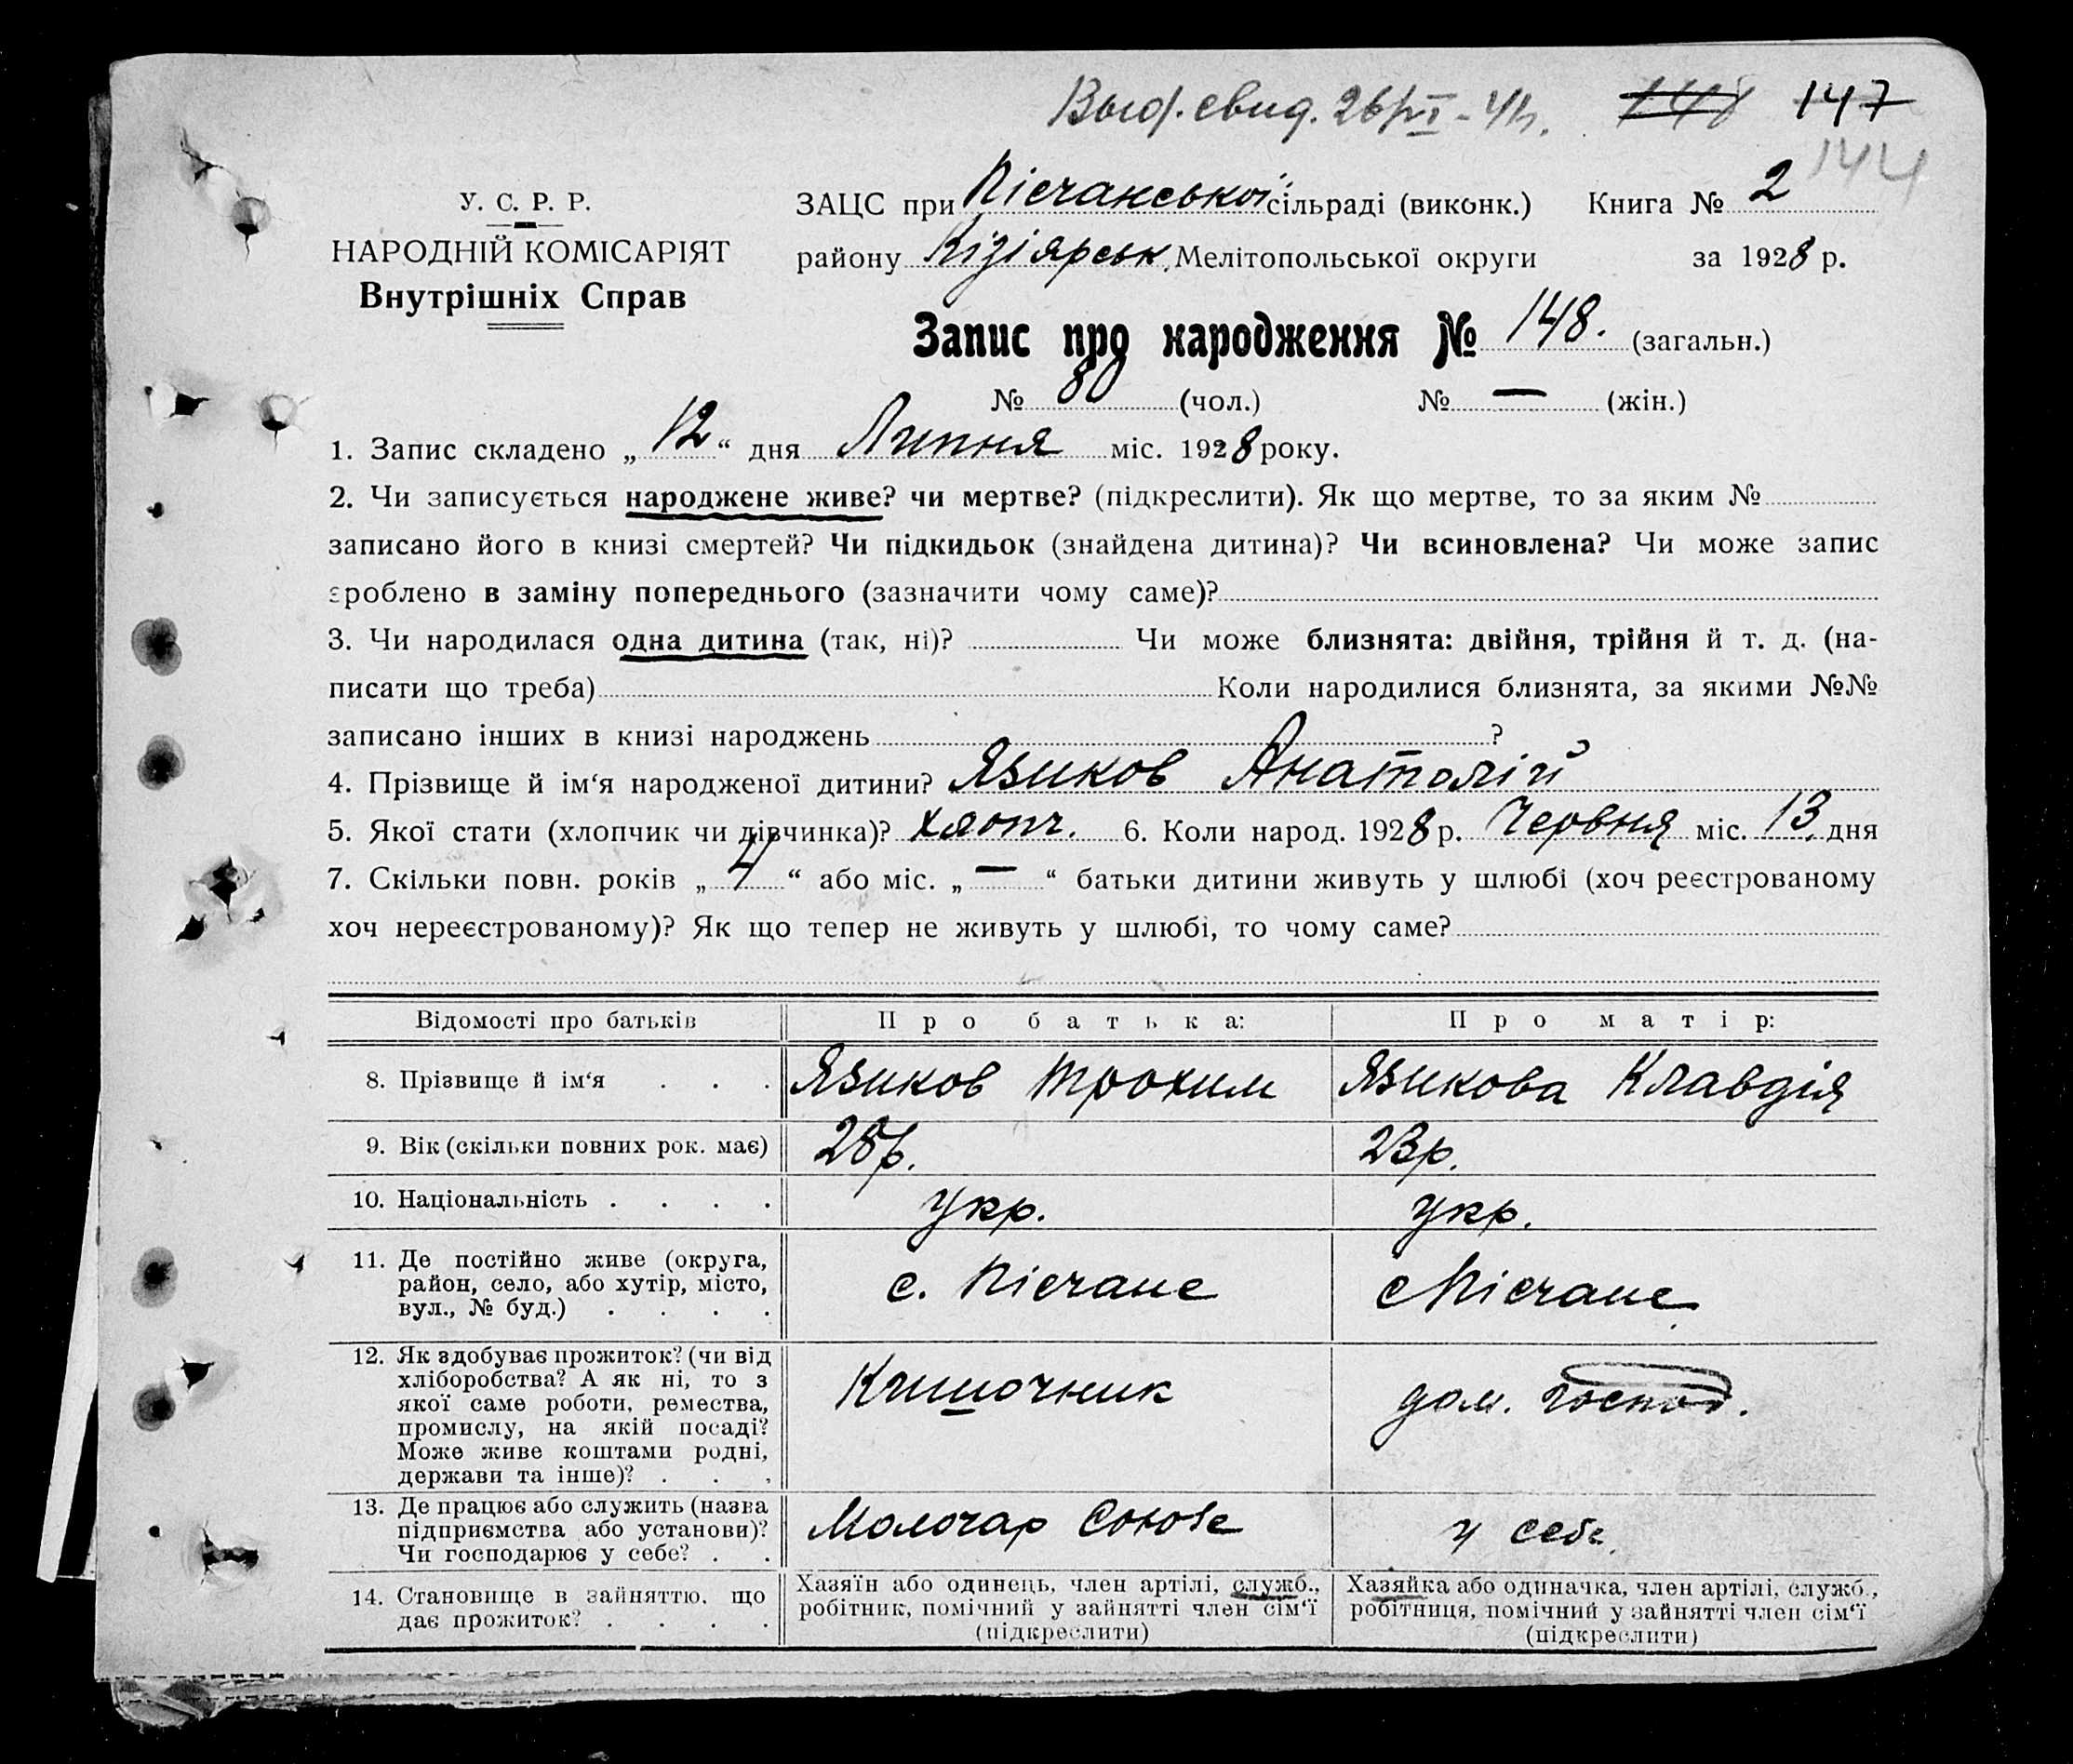 Выд. свид. 26/VI-41. 148 147
144
У. С. Р. Р.
НАРОДНІЙ КОМІСАРІЯТ
Внутрішніх Справ
ЗАЦС при Пісчанської сільраді (виконк.) Книга № 2
району Кізіярськ. Мелітопольської округи за 1928 р.
Запис про народження № 148. (загальн.)
№ 80 (чол.) № — (жін.)
1. Запис складено „ 12 “ дня Липня міс. 1928 року.
2. Чи записується народжене живе? чи мертве? (підкреслити). Як що мертве, то за яким №
записано його в книзі смертей? Чи підкидьок (знайдена дитина)? Чи всиновлена? Чи може запис
зроблено в заміну попереднього (зазначити чому саме)?
3. Чи народилася одна дитина (так, ні)? Чи може близнята: двійня, трійня й т. д. (на-
писати що треба) Коли народилися близнята, за якими №№
записано інших в книзі народжень ?
4. Прізвище й ім‘я народженої дитини? Язиков Анатолій
5. Якої стати (хлопчик чи дівчинка)? хлопч. 6. Коли народ. 1928 р. Червня міс. 13 дня
7. Скільки повн. років „ 4 “ або міс. „ — “ батьки дитини живуть у шлюбі (хоч реєстрованому
хоч нереєстрованому)? Як що тепер не живуть у шлюбі, то чому саме?
Відомості про батьків Про батька: Про матір:
8. Прізвище й ім‘я . . . Язиков Трохим Язикова Клавдія
9. Вік (скільки повних рок. має) 28 р. 23 р.
10. Національність . . . . укр. укр.
11. Де постійно живе (округа,
район, село, або хутір, місто,
вул., № буд.) . . . .
с. Пісчане с Пісчане
12. Як здобуває прожиток? (чи від
хліборобства? А як ні, то з
якої саме роботи, ремества,
промислу, на якій посаді?
Може живе коштами родні,
держави та інше)? . . .
Кишочник дом. господ.
13. Де працює або служить (назва
підприємства або установи)?
Чи господарює у себе? . .
Молочар Союзе у себе
14. Становище в зайняттю, що
дає прожиток? . . . .
Хазяїн або одинець, член артілі, служб.,
робітник, помічний у зайнятті член сім‘ї
(підкреслити)
Хазяйка або одиначка, член артілі, служб.,
робітниця, помічний у зайнятті член сім‘ї
(підкреслити)